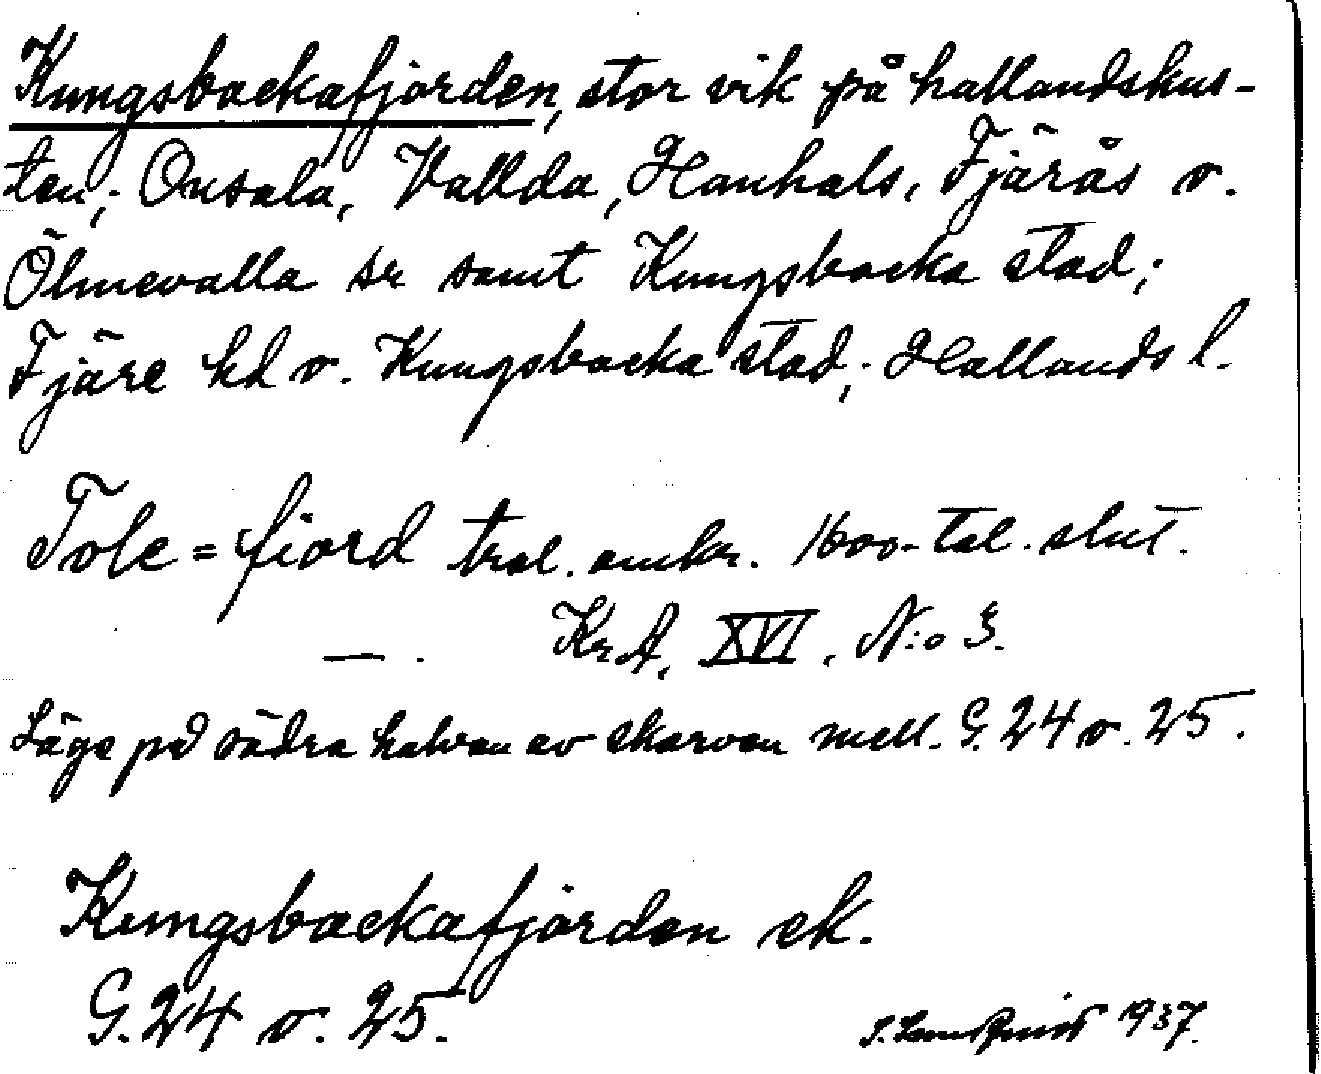 Kungsbackafjorden, stor vik på hallandskus-
ten; Onsala, Vallda, Hanhals, Fjärås o.
Ölmevalla sr samt Kungsbacka stad;
Fjäre hd o. Kungsbacka stad; Hallands l.
Tole=fiord trol. omkr. 1600-tal. slut.
— . KrA, XVI, N:o 3.
Läge på södra halvan av skarven mell. G. 24 o. 25.
Kungsbackafjorden ek.
G. 24 o. 25.
1937.